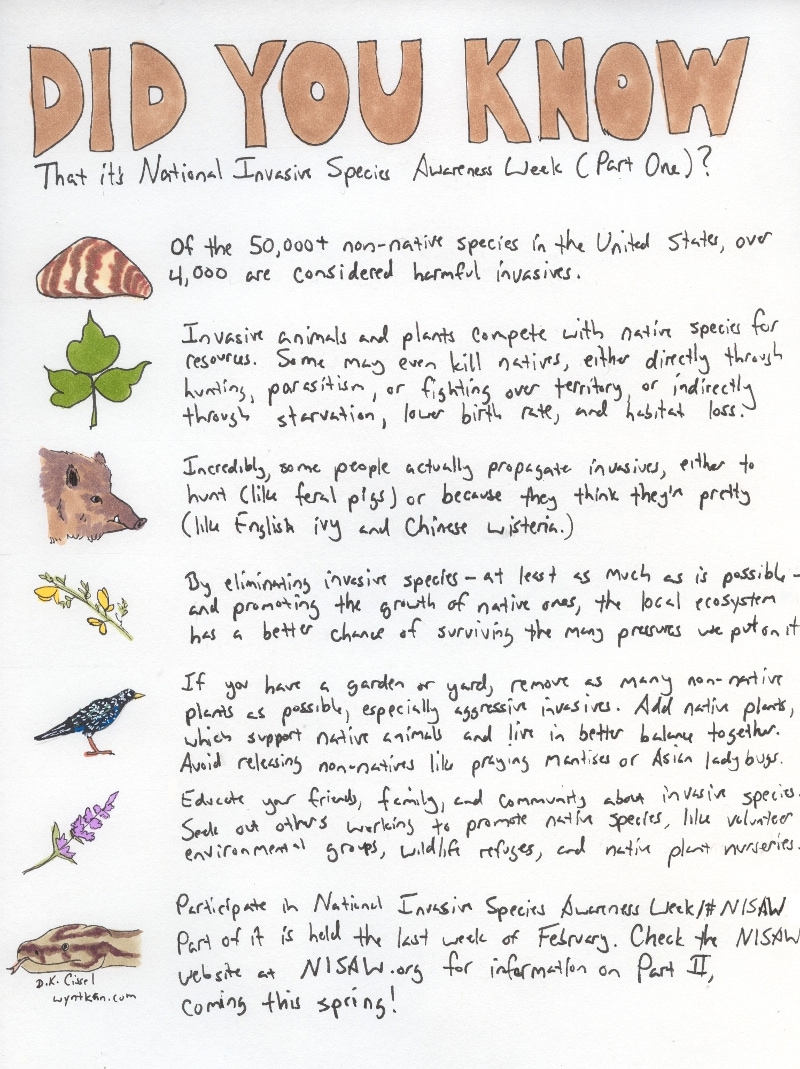 DID YOU KNOW
That it's National Invasive Species Awareness Week (Part One)?
Of the 50,000+ non-native species in the United States, over
4,000 are considered harmful invasives.
Invasive animals and plants compete with native species for
resources. Some may even kill natives, either directly through
hunting, parasitism, or fighting over territory, or indirectly
through starvation, lower birth rate, and habitat loss.
Incredibly, some people actually propagate invasives, either to
hunt (like feral pigs) or because they think they're pretty
(like English ivy and Chinese wisteria.)
By eliminating invasive species - at least as much as is possible -
and promoting the growth of native ones, the local ecosystem
has a better chance of surviving the many pressures we put on it
If you have a garden or yard, remove as many non-native
plants as possible, especially aggressive invasives. Add native plants,
which support native animals and live in better balance together.
Avoid releasing non-natives like praying mantises or Asian ladybugs.
Educate your friends, family, and community about invasive species.
Seek out others working to promote native species, like volunteer
environmental groups, wildlife refuges, and native plant nurseries.
Participate in National Invasive Species Awareness Week/#NISAW
Part of it is held the last week of February. Check the NISAW
website at NISAW.org for information on Part II,
coming this spring!
D.K. Cissel
wyntkan.com